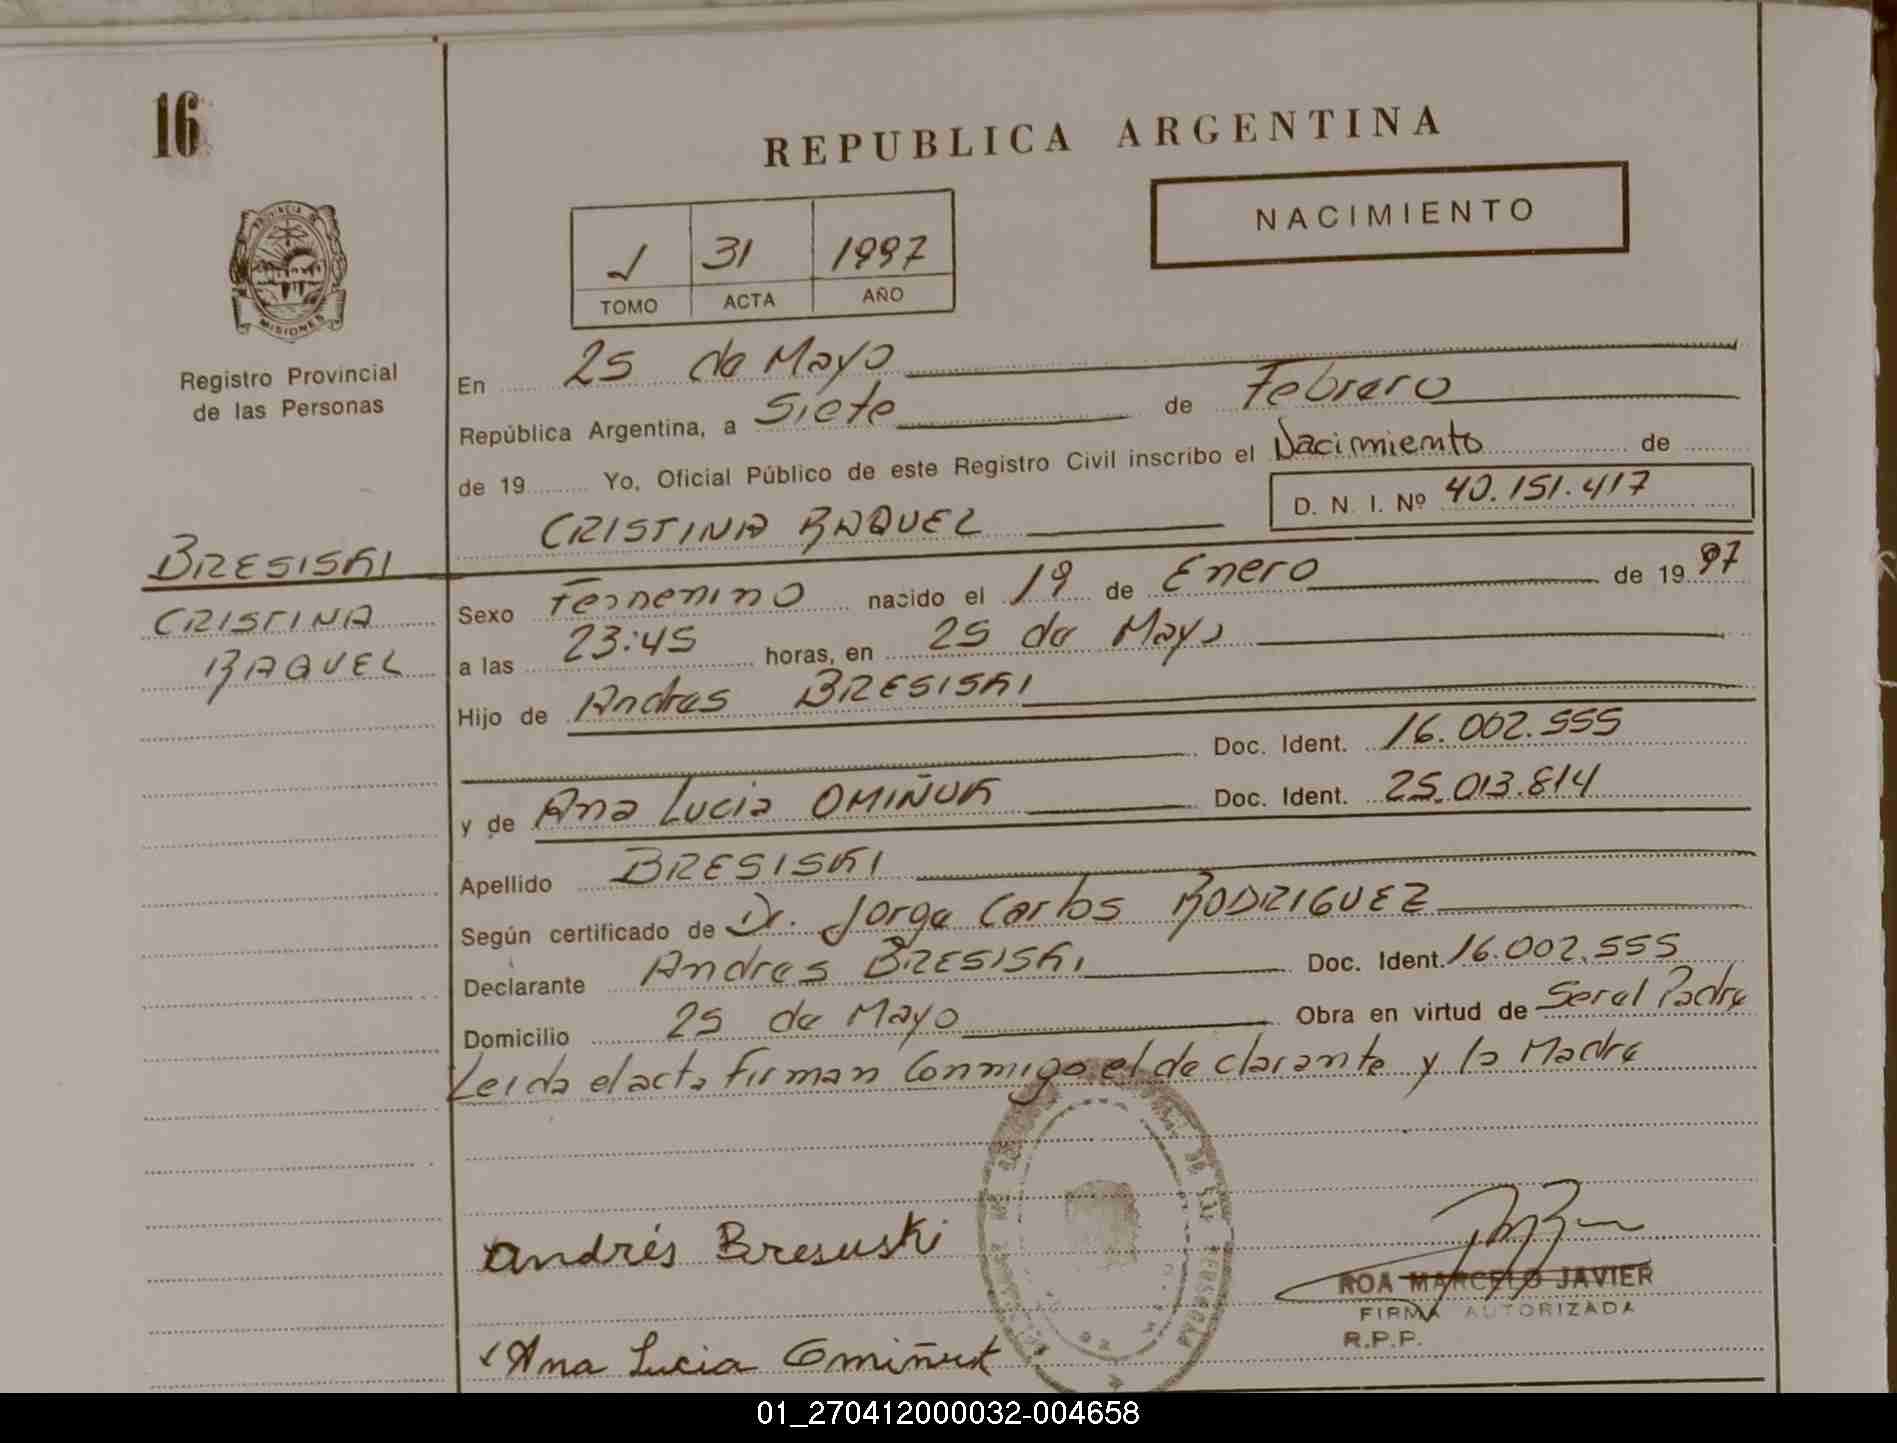 16
REPUBLICA ARGENTINA
NACIMIENTO
1 31 1997
TOMO ACTA AÑO
PROVINCIA DE
MISIONES
Registro Provincial
de las Personas
En 25 de Mayo
República Argentina, a Siete de Febrero
de 19 Yo, Oficial Público de este Registro Civil inscribo el Nacimiento de
D. N. I. Nº 40.151.417
CRISTINA RAQUEL
BRESISKI
CRISTINA
RAQUEL
Sexo Femenino nacido el 19 de Enero de 1997
a las 23:45 horas, en 25 de Mayo
Hijo de Andres BRESISKI
Doc. Ident. 16.002.555
y de Ana Lucia OMIÑUK Doc. Ident. 25.013.814
Apellido BRESISKI
Según certificado de Dr. Jorge Carlos RODRIGUEZ
Declarante Andres BRESISKI Doc. Ident. 16.002.555
Domicilio 25 de Mayo Obra en virtud de Ser el Padre
Leida el acta Firman Conmigo el declarante y la Madre
Andrés Bresiski
Ana Lucia Omiñuk
ROA MARCELO JAVIER
FIRMA AUTORIZADA
R.P.P.
01_270412000032-004658